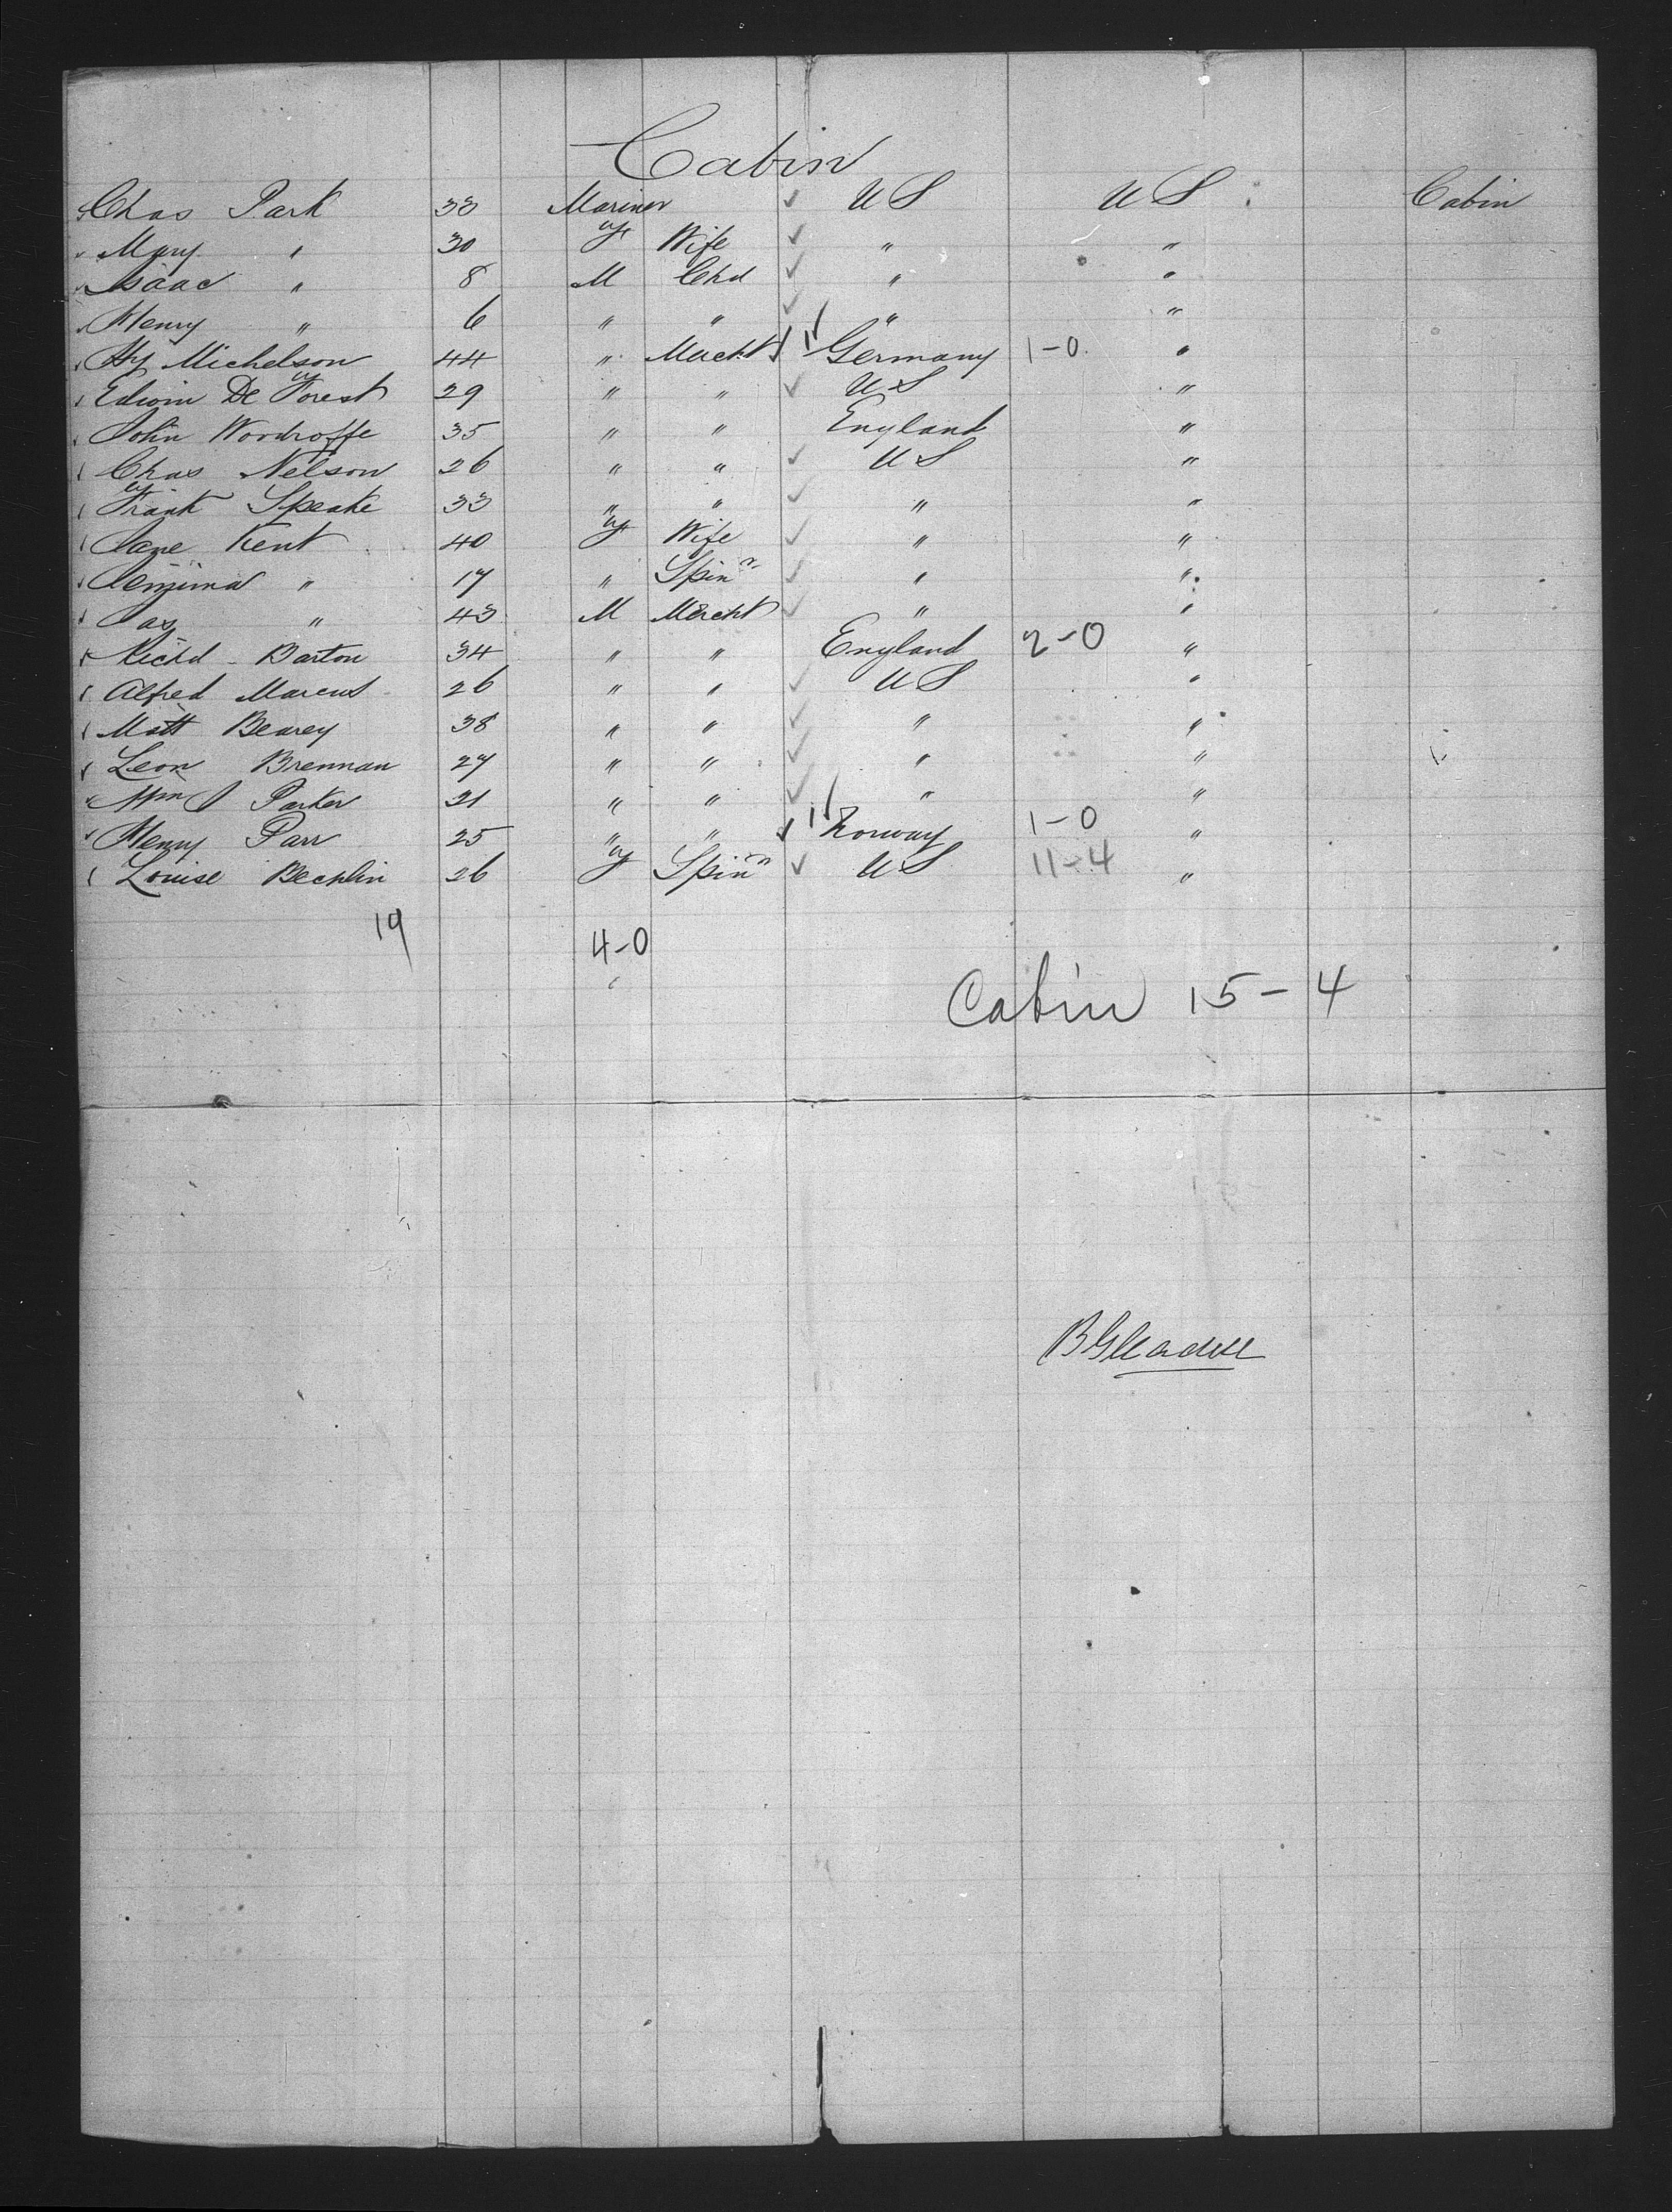 Cabin
Chas Park 33 Mariner U S U S Cabin
Mary " 30 F Wife " "
Isaac " 8 M Chd " "
Henry " 6 " " " "
Hy Michelson 44 " Mercht Germany 1-0 "
Edwin De Forest 29 " " U S "
John Woodroffe 35 " " England "
Chas Nelson 26 " " U S "
Frank Speake 33 " " " "
Jane Kent 40 F Wife " "
Jemima " 17 " Spinr " "
Jas " 43 M Mercht " "
Richd Barton 34 " " England 2-0 "
Alfred Marcus 26 " " U S "
Matt Bearey 38 " " " "
Leon Brennan 27 " " " "
Wm J Parker 21 " " " "
Henry Parr 25 " " Norway 1-0 "
Louise Bechlin 26 F Spinr U S 11-4 "
19 4-0
Cabin 15-4
B Gleadell